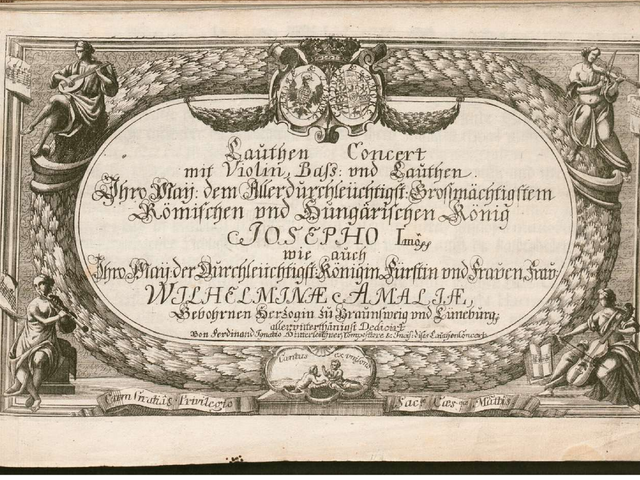 Lauthen Concert
mit Violin, Bass: und Lauthen.
Ihro May: dem Allerdurchleüchtigst: Grossmächtigstem
Römischen vnd Hungarischen König
JOSEPHO Imo
wie auch
Ihro May: der Durchleüchtigst: Königin Fürstin vnd Frauen, Fraw
WILHELMINÆ AMALIÆ,
Gebohrnen Herzogin zu Braunsweig vnd Lüneburg,
allervnterthänigst Dedicirt
Von Ferdinand Ignatio Hinterleithner, Compositore &
Caritas ex unisono
Cum Gratia & Privilegio
Sacr Cæs